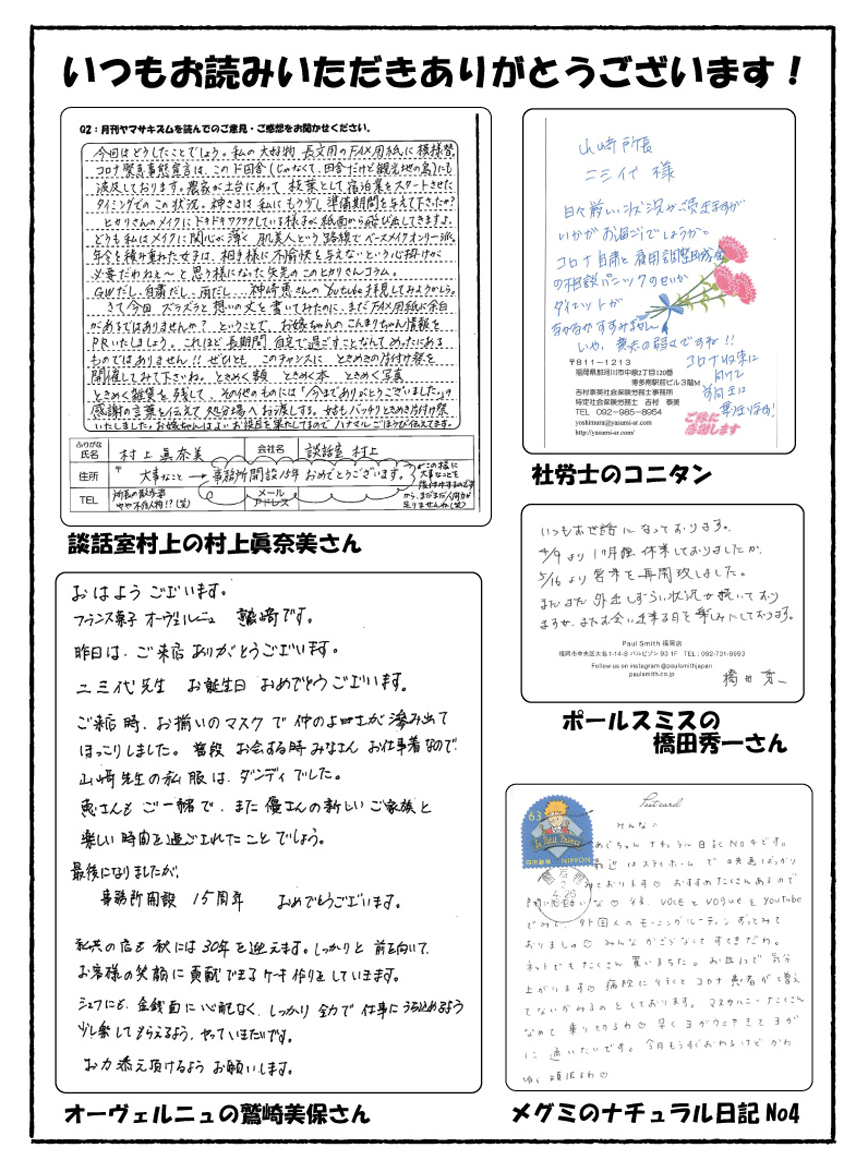 いつもお読みいただきありがとうございます！
Q2：月刊ヤマサキズムを読んでのご意見・ご感想をお聞かせください。
今回はどうしたことでしょう。私の大好物 長文用のFAX用紙に模様替。
コロナ緊急事態宣言は、このド田舎(じゃなくて、田舎だけど観光地の島)にも
波及しております。農家が土台にあって、枝葉として宿泊業をスタートさせた
タイミングでのこの状況。神さまは私にもう少し準備期間を与えて下さったか？
ヒカリさんのメイクにドキドキワクワクしている様子が紙面から飛び出してきますよ。
どうも私はメイクに関心が薄く 肌美人という路線でベースメイクオンリー派。
年令を積み重ねた女子は、相手様に不愉快を与えないという心掛けが
必要だわねぇ〜と思う様になった矢先のこのヒカリさんコラム。
GWだし、自粛だし、雨だし… 神崎恵さんのYoutube拝見してみようかしら。
さて今回 ズラズラと想いの丈を書いてみたのに、まだFAX用紙に余白
があるではありませんか？ ということで、お嫁ちゃんのこんまりちゃん情報を
PRいたしましょう。これほど長期間 自宅で過ごすことなんてめったにある
ものではありません!! ぜひとも このチャンスに ときめきの片付け祭を
開催してみて下さいね。ときめく衣類 ときめく本 ときめく写真
ときめく雑貨を残して、その他のものには「今までありがとうございました。」の
感謝の言葉を伝えて処分場へお渡しする。
ふりがな
氏名
村上 眞奈美
会社名
談話室 村上
住所
〒
大事なこと → 事務所開設15年 おめでとうございます。
TEL
メール
アドレス
談話室村上の村上眞奈美さん
山崎所長
ニ三代 様
日々厳しい状況が続きますが
いかがお過ごしでしょうか。
コロナ自粛と雇用調整助成金
の相談パニックのせいか
ダイエットが
なかなかすすみません
いや、意志の弱さですね!!
コロナ収束に
向けて
〒811-1213
福岡県那珂川市中原2丁目120番
博多南駅前ビル3階M
吉村泰美社会保険労務士事務所
特定社会保険労務士 吉村 泰美
TEL 092-985-8954
yoshimura@yasumi-sr.com
http://yasumi-sr.com/
ご縁に
感謝します
社労士のコニタン
いつもお世話になっております。
4/9より1ヶ月強 休業しておりましたが、
5/16より営業を再開致しました。
まだまだ外出しずらい状況が続いており
ますが、またお会い出来る日を楽しみにしております。
Paul Smith 福岡店
福岡市中央区大名1-14-8 バルビゾン93 1F TEL：092-731-8993
Follow us on instagram @paulsmithjapan
paulsmith.co.jp
橋田 秀一
ポールスミスの
橋田秀一さん
おはようございます。
フランス菓子 オーヴェルニュ 鷲崎です。
昨日は、ご来店ありがとうございます。
ニ三代先生 お誕生日 おめでとうございます。
ご来店時、お揃いのマスクで仲のよさが滲み出て
ほっこりしました。普段 お会する時 みなさん お仕事着なので、
山崎先生の私服は、ダンディでした。
恵さんもご一緒で、また優さんの新しいご家族と
楽しい時間を過ごされたことでしょう。
最後になりましたが、
事務所開設 15周年 おめでとうございます。
私共の店も秋には30年を迎えます。しっかりと前を向いて、
お客様の笑顔に貢献できるケーキ作りをしていきます。
シェフにも、金銭面に心配なく、しっかり全力で仕事にうち込めるよう
少し楽してもらえるよう、やっていきたいです。
お力添え頂けるよう お願いします。
オーヴェルニュの鷲崎美保さん
Postcard
63
Le Petit Prince
日本郵便 NIPPON
みんなに
めぐちゃん ナチュラル日記 No4です。
最近はステイホームで 映画ばっかり
みております♡ おすすめたくさんあるので
VOCEとVOGUEをYouTube
でみて、外国人のモーニングルーティンずっとみて
おりましの♡ みんなかっこよくてすてきだわ。
ネットでもたくさん買いました。お皿で気分
上がります♡ 病院に行くとコロナ患者が増え
てないかみるのとしております。
なめて乗り切るわ♡ 早くヨガウェアきてヨガ
に通いたいです。今月もうすぐおわるけどかわ
ゆく頑張るわ♡
メグミのナチュラル日記 No4